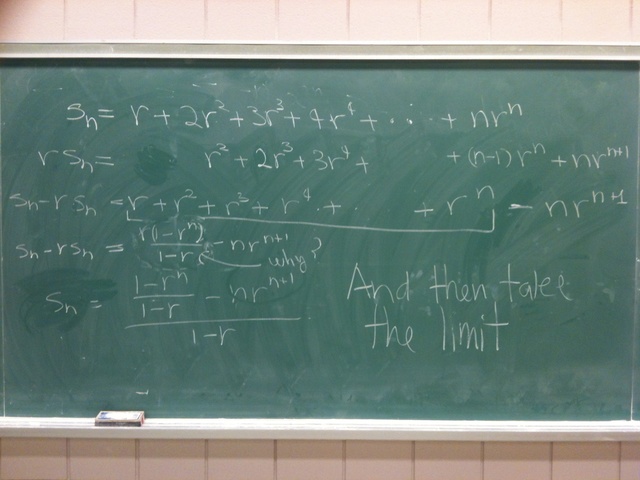 Sn = r + 2r² + 3r³ + 4r⁴ + ... + nrⁿ
rSn = r² + 2r³ + 3r⁴ + + (n-1)rⁿ + nrⁿ⁺¹
Sn - rSn = r + r² + r³ + r⁴ + + rⁿ - nrⁿ⁺¹
Sn - rSn = r(1-rⁿ)/1-r - nrⁿ⁺¹
why?
Sn = (1-rⁿ/1-r - nrⁿ⁺¹)/1-r
And then take
the limit